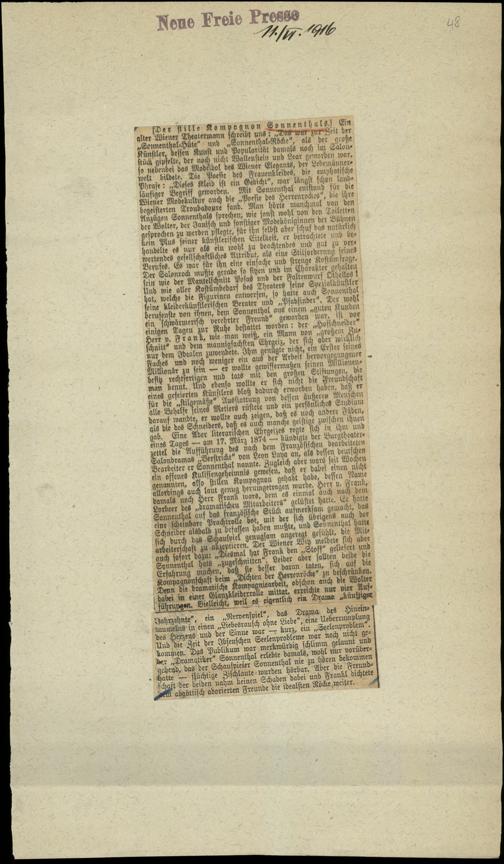 Neue Freie Presse
11./VI. 1916
48
[Der stille Kompagnon Sonnenthals.] Ein
alter Wiener Theatermann schreibt uns: „Das war zur Zeit der
„Sonnenthal-Hüte“ und „Sonnenthal-Röcke“, als der große
Künstler, dessen Kunst und Popularität damals noch im Salon-
stück gipfelte, der noch nicht Wallenstein und Lear geworden war,
so nebenbei das Modebild des Wiener Elegants, der Lebemänner-
welt bildete. Die Poesie des Frauenkleides, die emphatische
Phrase: „Dieses Kleid ist ein Gedicht“, war längst schon land-
läufiger Begriff geworden. Mit Sonnenthal entstand für die
Wiener Modekultur auch die „Poesie des Herrenrockes“, die ihre
begeisterten Troubadoure fand. Man hörte manchmal von den
Anzügen Sonnenthals sprechen, wie sonst wohl von den Toiletten
der Wolter, der Janisch und sonstiger Modeköniginnen der Bühnen
gesprochen zu werden pflegte, für ihn selbst aber schuf das natürlich
kein Plus seiner künstlerischen Eitelkeit, er betrachtete und be-
handelte es nur als ein wohl zu beachtendes und gut zu ver-
wertendes gesellschaftliches Attribut, als eine Stilforderung seines
Berufes. Es war für ihn eine einfache und strenge Kostümfrage.
Der Salonrock mußte gerade so sitzen und im Charakter gehalten
sein wie der Mantelschnitt Posas und der Faltenwurf Othellos.
Und wie aller Kostümbedarf des Theaters seine Spezialkünstler
hat, welche die Figurinen entwerfen, so hatte auch Sonnenthal
seine kleiderkünstlerischen Berater und „Pfadfinder“. Der wohl
berufenste von ihnen, dem Sonnenthal aus einem „guten Kunden
ein schwärmerisch verehrter Freund“ geworden war, ist vor
einigen Tagen zur Ruhe bestattet worden: der „Hofschneider“
Herr v. Frank, wie man weiß, ein Mann von „großem Zu-
schnitt“ und dem mannigfachsten Ehrgeiz, der sich aber wirklich
nur dem Idealen zuwendete. Ihm genügte nicht, ein Erster seines
Faches und noch weniger ein aus der Arbeit hervorgegangener
Millionär zu sein — er wollte gewissermaßen seinen Millionen-
besitz rechtfertigen und tat's mit den großen Stiftungen, die
man kennt. Und ebenso wollte er sich nicht die Freundschaft
eines gefeierten Künstlers bloß dadurch erworben haben, daß er
für die „stilgemäße“ Ausstattung von dessen äußerem Menschen
alle Behelfe seines Metiers rüstete und ein persönliches Studium
darauf wandte, er wollte auch zeigen, daß es noch andere Fäden,
als die des Schneiders, daß es auch manche geistige zwischen ihnen
gab. Eine Ader literarischen Ehrgeizes regte sich in ihm und
eines Tages — am 17. März 1874 — kündigte der Burgtheater-
zettel die Aufführung des nach dem Französischen bearbeiteten
Salondramas „Verstrickt“ von Leon Laya an, als dessen deutschen
Bearbeiter er Sonnenthal nannte. Zugleich aber ward seit Wochen
ein offenes Kulissengeheimnis gewesen, daß er dabei einen nicht
genannten, also stillen Kompagnon gehabt habe, dessen Name
allerdings auch laut genug herumgetragen wurde. Herr v. Frank,
damals noch Herr Frank war's, dem es einmal auch nach dem
Lorbeer des „dramatischen Mitarbeiters“ gelüstet hatte. Er hatte
Sonnenthal auf das französische Stück aufmerksam gemacht, das
eine scheinbare Prachtrolle bot, mit der sich übrigens auch der
Schneider alsbald zu befassen haben mußte, und Sonnenthal hatte
sich durch das Schauspiel genugsam angeregt gefühlt, die Mit-
arbeiterschaft zu akzeptieren. Der Wiener Witz meldete sich aber
auch sofort dazu: „Diesmal hat Frank den „Stoff“ geliefert und
Sonnenthal hat's „zugeschnitten“. Leider aber sollten beide die
Erfahrung machen, daß sie besser daran taten, sich auf die
Kompagnonschaft beim „Dichten der Herrenröcke“ zu beschränken.
Denn die dramatische Kompagniearbeit, obschon auch die Wolter
dabei in einer Glanzkleiderrolle mittat, erreichte nur vier Auf-
führungen. Vielleicht, weil es eigentlich ein Drama „künftiger
Jahrzehnte“, ein „Nervenspiel“, das Drama des Hinein-
taumelns in einen „Liebesrausch ohne Liebe“, eine Ueberrumplung
des Herzens und der Sinne war — kurz, ein „Seelenproblem“.
Und die Zeit der Ibsenschen Seelenprobleme war noch nicht ge-
kommen. Das Publikum war merkwürdig schlimm gelaunt und
der „Dramatiker“ Sonnenthal erlebte damals, wohl nur vorüber-
gehend, das, was der Schauspieler Sonnenthal nie zu hören bekommen
hatte — flüchtige Zischlaute wurden hörbar. Aber die Freund-
schaft der beiden nahm keinen Schaden dabei und Frankl dichtete
dem abgöttisch adorierten Freunde die idealsten Röcke weiter.